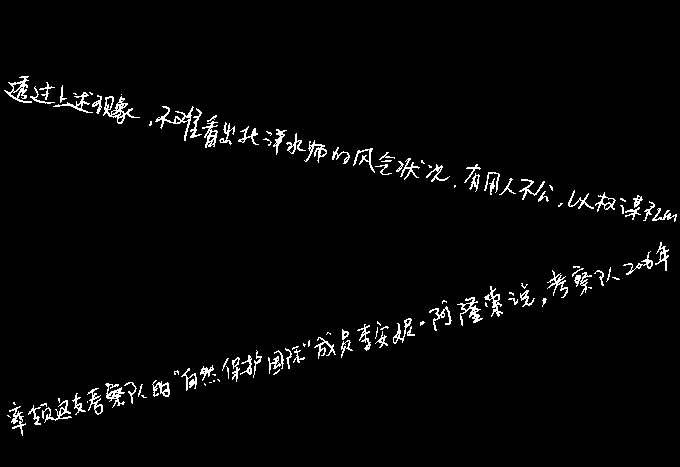 透过上述现象，不难看出北洋水师的风气状况，有用人不公，以权谋私
率领这支考察队的“自然保护国际”成员李安妮·阿隆索说，考察队2006年